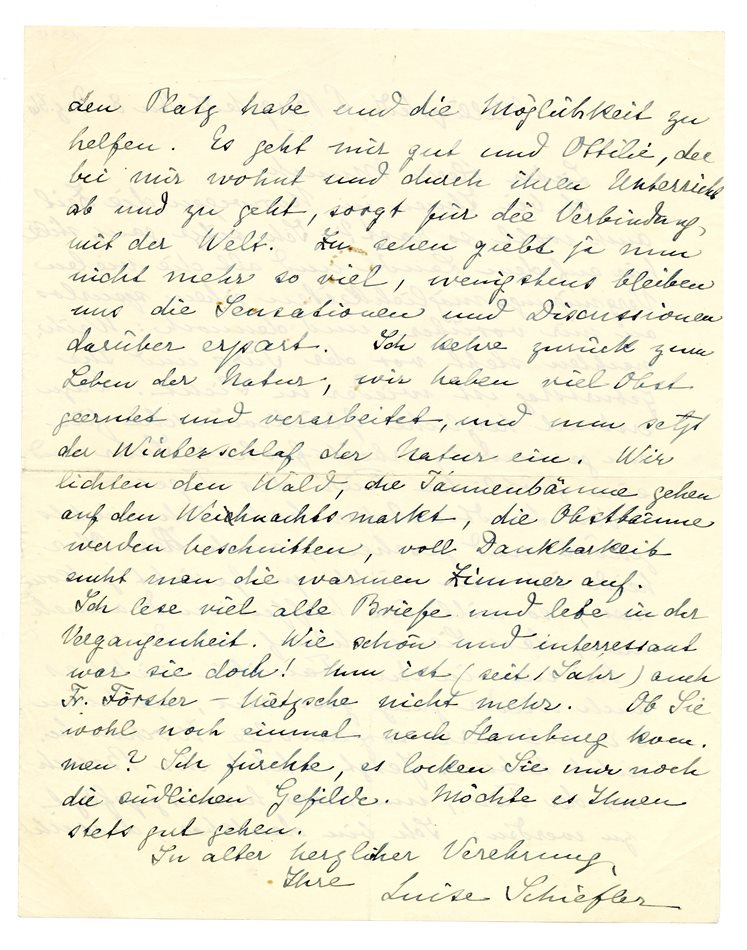 den Platz habe und die Möglichkeit zu
helfen. Es geht mir gut und Ottilie, die
bei mir wohnt und durch ihren Unterricht
ab und zu geht, sorgt für die Verbindung
mit der Welt. Zu sehen giebt ja nun
nicht mehr so viel, wenigstens bleiben
uns die Sensationen und Discussionen
darüber erspart. Ich kehre zurück zum
Leben der Natur, wir haben viel Obst
geerntet und verarbeitet, und nun setzt
der Winterschlaf der Natur ein. Wir
lichten den Wald, die Tannenbäume gehen
auf den Weihnachtsmarkt, die Obstbäume
werden beschnitten, voll Dankbarkeit
sucht man die warmen Zimmer auf.
Ich lese viel alte Briefe und lebe in der
Vergangenheit. Wie schön und interressant
war sie doch! Nun ist (seit 1 Jahr) auch
Fr. Förster - Nietzsche nicht mehr. Ob Sie
wohl noch einmal nach Hamburg kom-
men? Ich fürchte, es locken Sie nur noch
die südlichen Gefilde. Möchte es Ihnen
stets gut gehen.
In alter herzlicher Verehrung,
Ihre Luise Schiefler